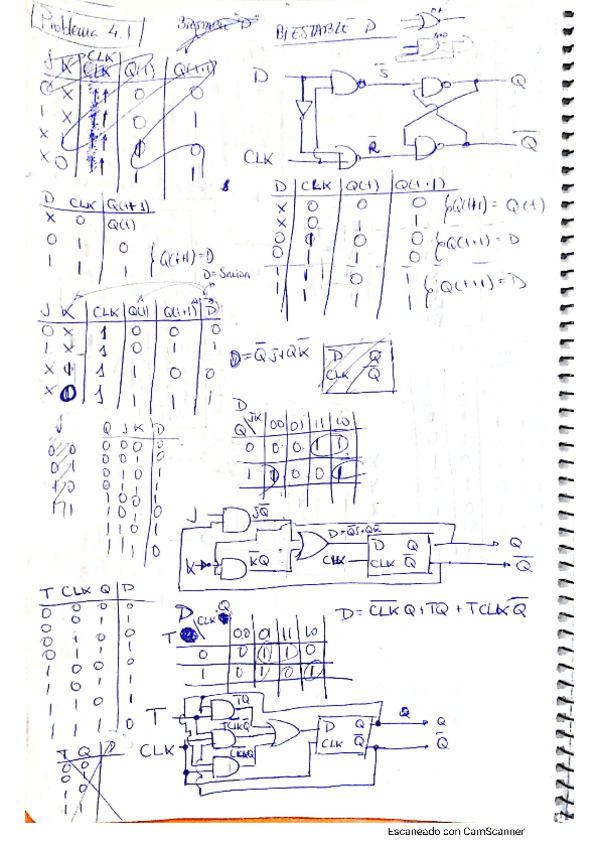 Problema 4.1
BIESTABLE D
J K CLK Q(t) Q(t+1)
0 X ↑ 0 0
1 X ↑ 0 1
X ↑ 1
X 0 ↑ 1 1
D S̅ Q
CLK R̅ Q̅
D CLK Q(t+1)
X 0 Q(t)
0 1 0
1 1 1
Q(t+1) = D
D CLK Q(t) Q(t+1)
X 0 0 0
X 0 1 1
Q(t+1) = Q(t)
0 1 0 0
0 1 1 0
Q(t+1) = D
1 1 0 1
1 1 1 1
Q(t+1) = D
J K CLK Q(t) Q(t+1) D
0 X 1 0 0 0
1 X 1 0 1 1
X 1 1 1 0 0
X 0 1 1 1 1
D = Q̅J + QK̅
D Q
CLK Q̅
Q J K D
0 0 0 0
0 0 1 0
0 1 0 1
0 1 1 1
1 0 0 1
1 0 1 0
1 1 0 1
1 1 1 0
D
Q JK 00 01 11 10
0 0 0 1 1
1 1 0 0 1
J JQ̅
K K̅Q
D = Q̅J + QK̅
CLK
D Q
CLK Q̅
Q
Q̅
T CLK Q D
0 0 0 0
0 0 1 1
0 1 0 0
0 1 1 1
1 0 0 0
1 0 1 1
1 1 0 1
1 1 1 0
D
T CLK Q 00 01 11 10
0 0 1 1 0
1 0 1 0 1
D = C̅L̅K̅ Q + T̅Q + T CLK Q̅
T T̅Q
TCLKQ̅
CLK C̅L̅K̅Q
D Q
CLK Q̅
Q
Q
Q̅
T Q D
0 0
0 1
1 0
1 1
Escaneado con CamScanner